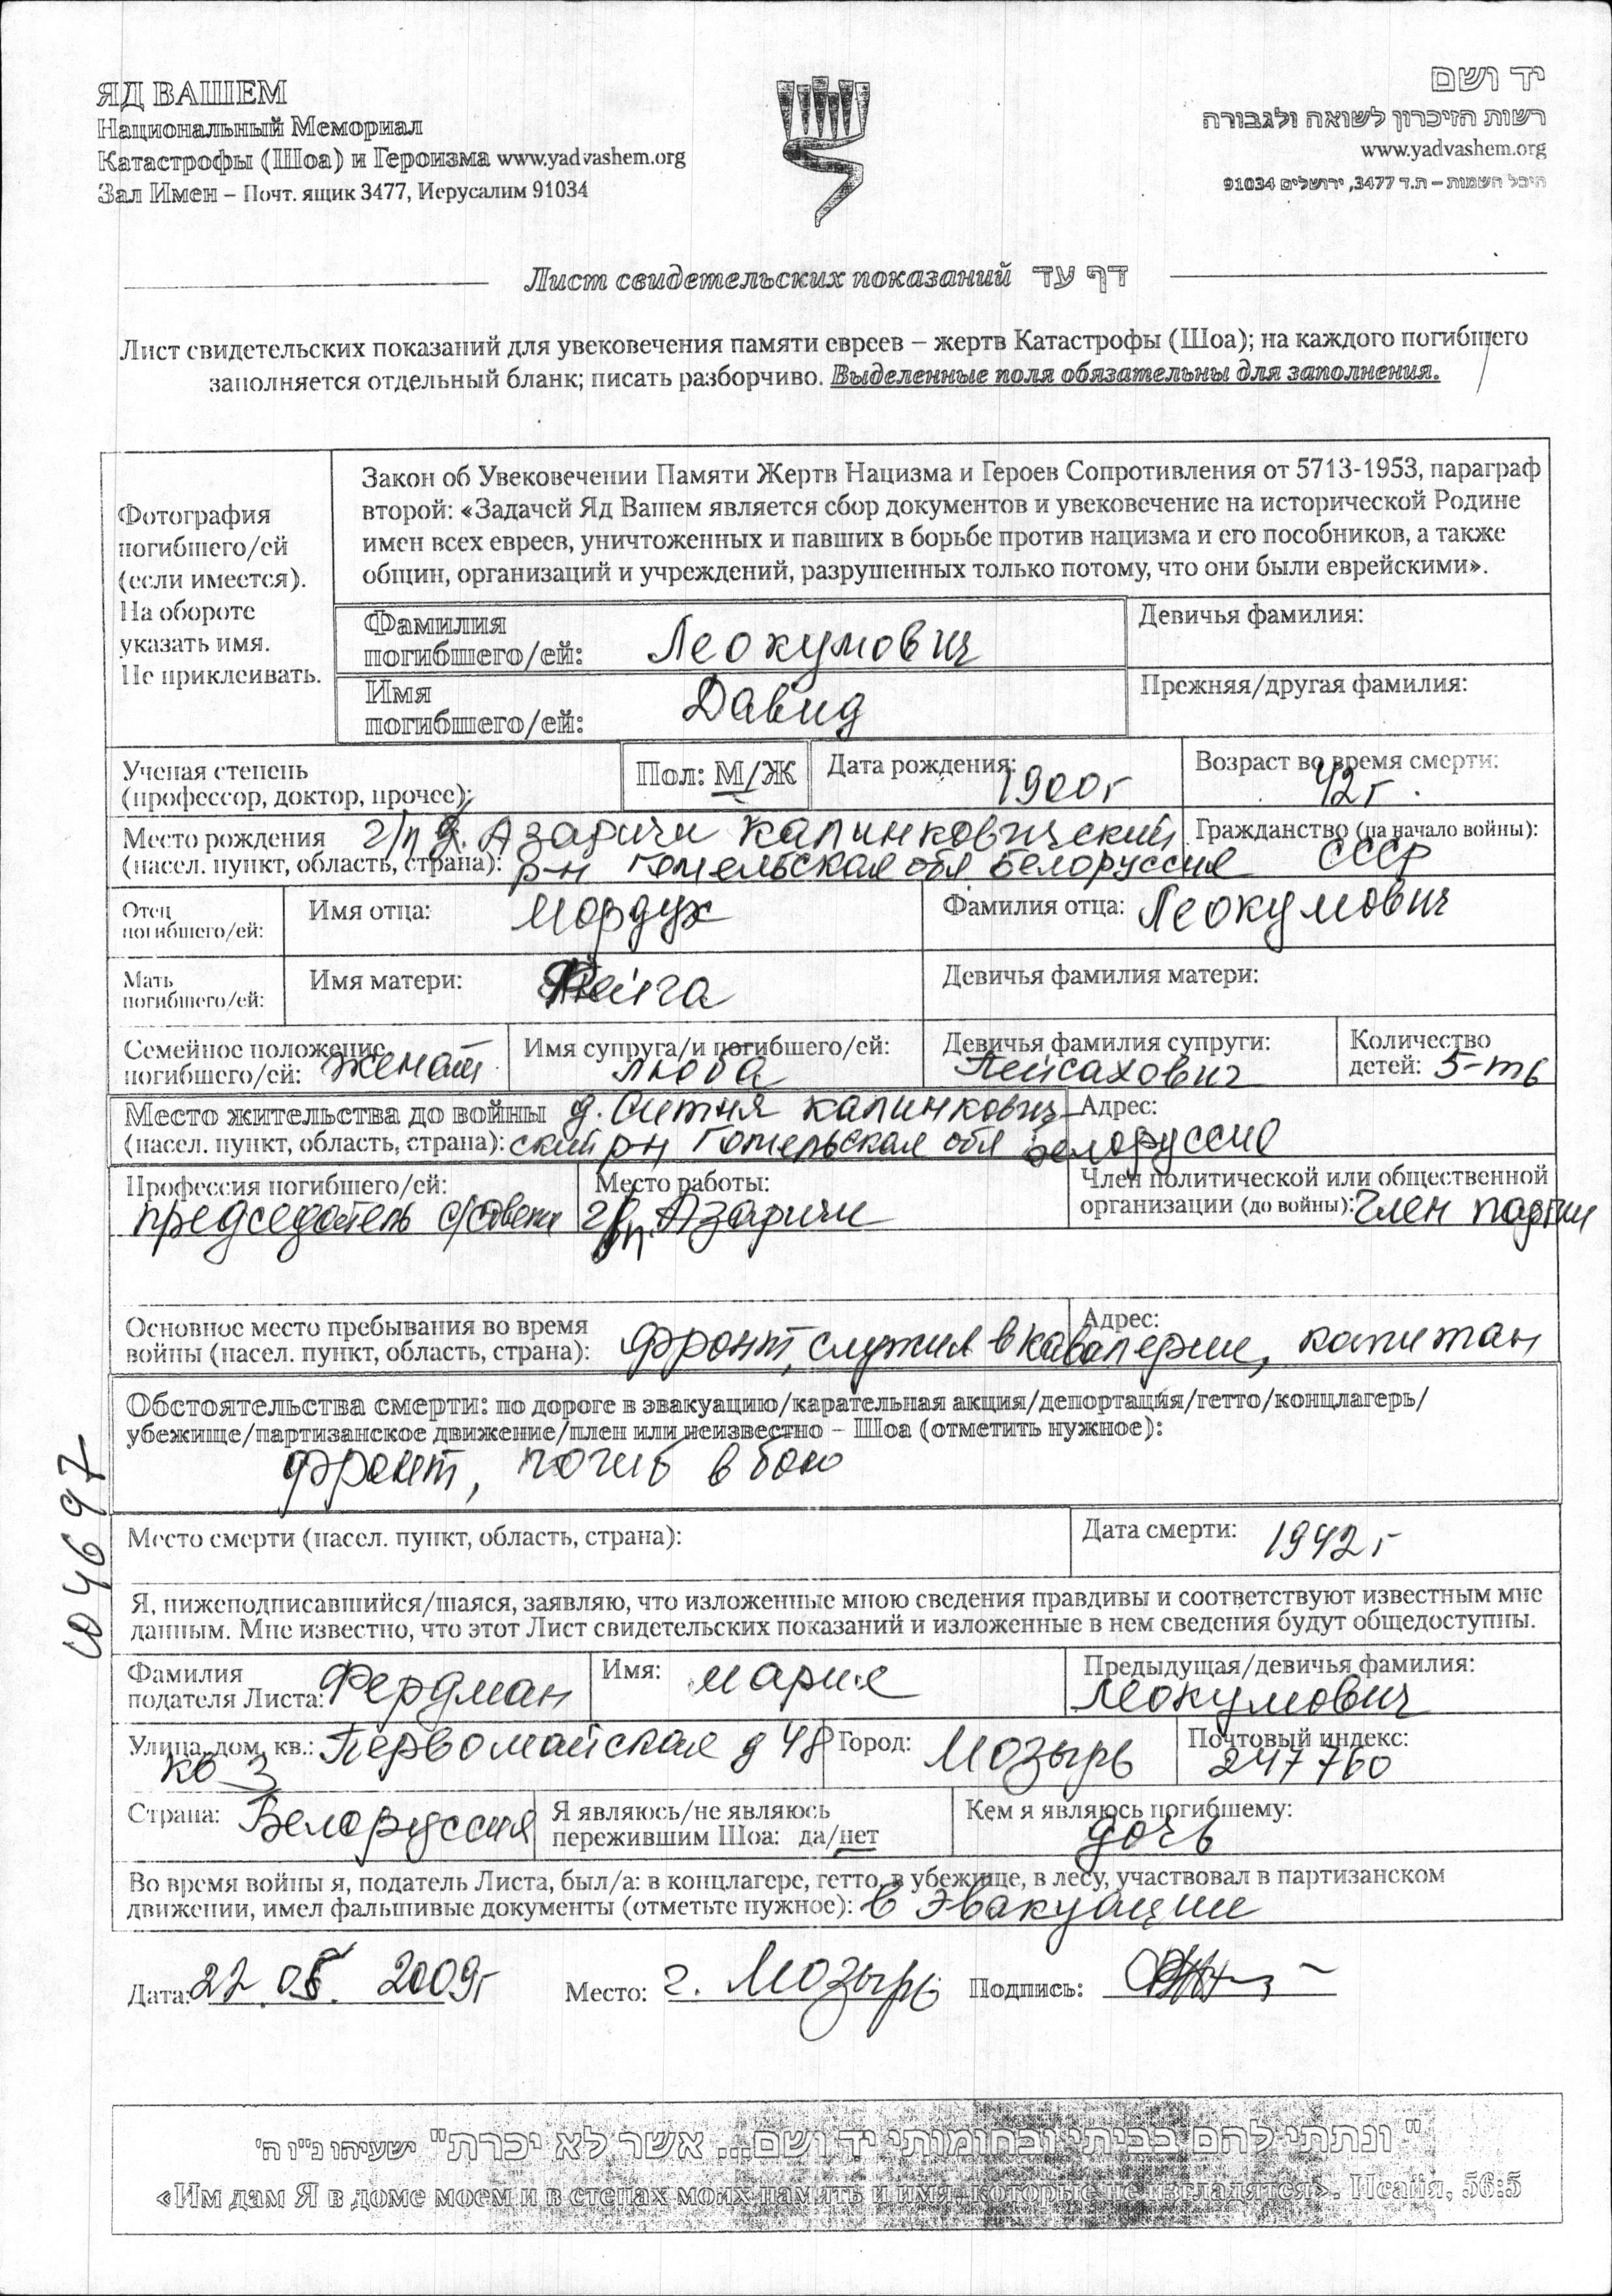 ЯД ВАШЕМ
Национальный Мемориал
Катастрофы (Шоа) и Героизма www.yadvashem.org
Зал Имен – Почт. ящик 3477, Иерусалим 91034
יד ושם
רשות הזיכרון לשואה ולגבורה
www.yadvashem.org
היכל השמות – ת.ד 3477, ירושלים 91034
Лист свидетельских показаний דף עד
Лист свидетельских показаний для увековечения памяти евреев – жертв Катастрофы (Шоа); на каждого погибшего
заполняется отдельный бланк; писать разборчиво. Выделенные поля обязательны для заполнения.
Фотография
погибшего/ей
(если имеется).
На обороте
указать имя.
Не приклеивать.
Закон об Увековечении Памяти Жертв Нацизма и Героев Сопротивления от 5713-1953, параграф
второй: «Задачей Яд Вашем является сбор документов и увековечение на исторической Родине
имен всех евреев, уничтоженных и павших в борьбе против нацизма и его пособников, а также
общин, организаций и учреждений, разрушенных только потому, что они были еврейскими».
Фамилия
погибшего/ей: Леокумович
Девичья фамилия:
Имя
погибшего/ей: Давид
Прежняя/другая фамилия:
Ученая степень
(профессор, доктор, прочее):
Пол: М/Ж
Дата рождения: 1900г
Возраст во время смерти: 42г.
Место рождения г/п Азаричи Калинковичский
(насел. пункт, область, страна): р-н Гомельская обл Белоруссия
Гражданство (на начало войны): СССР
Отец
погибшего/ей:
Имя отца: Мордух
Фамилия отца: Леокумович
Мать
погибшего/ей:
Имя матери:
Девичья фамилия матери:
Семейное положение
погибшего/ей: женат
Имя супруга/и погибшего/ей:
Люба
Девичья фамилия супруги:
Пейсахович
Количество
детей: 5-ть
Место жительства до войны д. Ситня Калинкович-
(насел. пункт, область, страна): ский рн Гомельская обл Белоруссия
Адрес:
Профессия погибшего/ей:
председатель с/совета
Место работы:
г/п Азаричи
Член политической или общественной
организации (до войны): Член партии
Основное место пребывания во время
войны (насел. пункт, область, страна): фронт, служил в кавалерии, капитан
Адрес:
Обстоятельства смерти: по дороге в эвакуацию/карательная акция/депортация/гетто/концлагерь/
убежище/партизанское движение/плен или неизвестно – Шоа (отметить нужное):
фронт, погиб в бою
Место смерти (насел. пункт, область, страна):
Дата смерти: 1942г
Я, нижеподписавшийся/шаяся, заявляю, что изложенные мною сведения правдивы и соответствуют известным мне
данным. Мне известно, что этот Лист свидетельских показаний и изложенные в нем сведения будут общедоступны.
Фамилия
подателя Листа: Фердман
Имя: Мария
Предыдущая/девичья фамилия:
Леокумович
Улица, дом, кв.: Первомайская д 48
кв 3
Город: Мозырь
Почтовый индекс:
247760
Страна: Белоруссия
Я являюсь/не являюсь
пережившим Шоа: да/нет
Кем я являюсь погибшему:
дочь
Во время войны я, податель Листа, был/а: в концлагере, гетто, в убежище, в лесу, участвовал в партизанском
движении, имел фальшивые документы (отметьте нужное): в эвакуации
Дата: 22.05. 2009г
Место: г. Мозырь
Подпись:
"ונתתי להם בביתי ובחומותי יד ושם... אשר לא יכרת" ישעיהו נ"ו ה'
«Им дам Я в доме моем и в стенах моих память и имя, которые не изгладятся». Исайя, 56:5